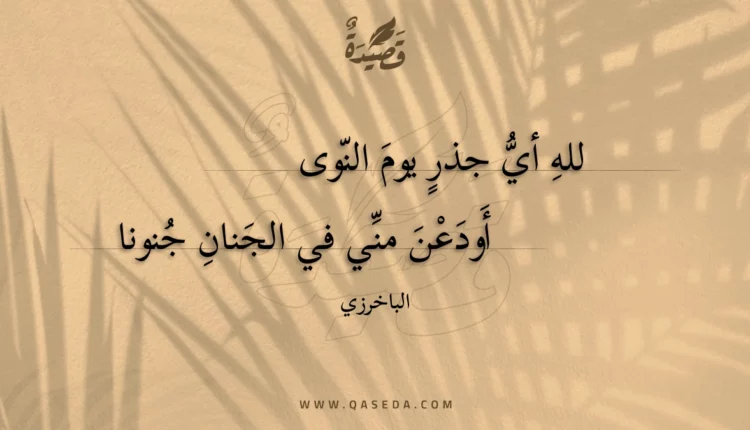 قَصِيْدَةٌ
للهِ أيُّ جذرٍ يومَ النّوى
أَودَعْنَ منِّي في الجَنانِ جُنونا
الباخرزي
WWW.QASEDA.COM